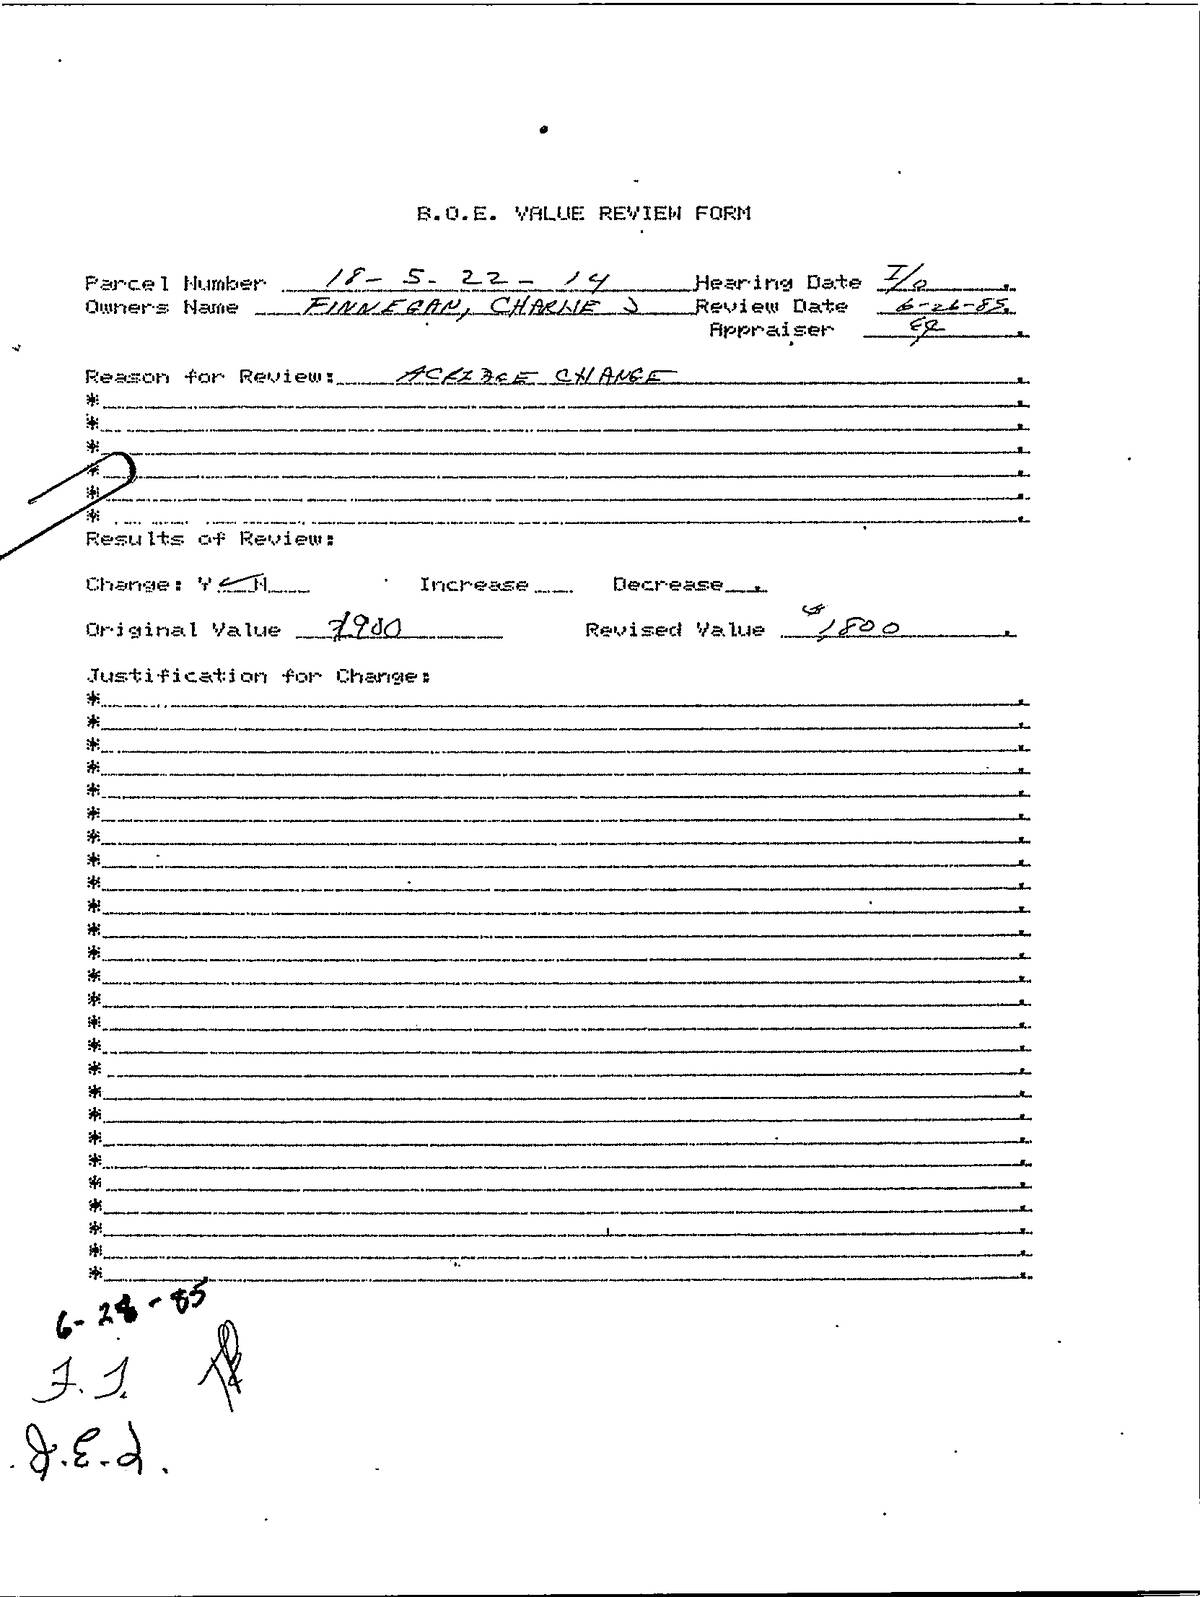 B.O.E. VALUE REVIEW FORM
Parcel Number 18-5-22-14 Hearing Date I/O.
Owners Name FINNEGAN, CHARLIE J Review Date 6-26-85.
Appraiser .
Reason for Review: ACREAGE CHANGE .
* .
* .
* .
* .
* .
* .
Results of Review:
Change: Y ✓ N Increase Decrease .
Original Value Revised Value $1,800 .
Justification for Change:
* .
* .
* .
* .
* .
* .
* .
* .
* .
* .
* .
* .
* .
* .
* .
* .
* .
* .
* .
* .
* .
* .
* .
* .
* .
* .
6-28-85